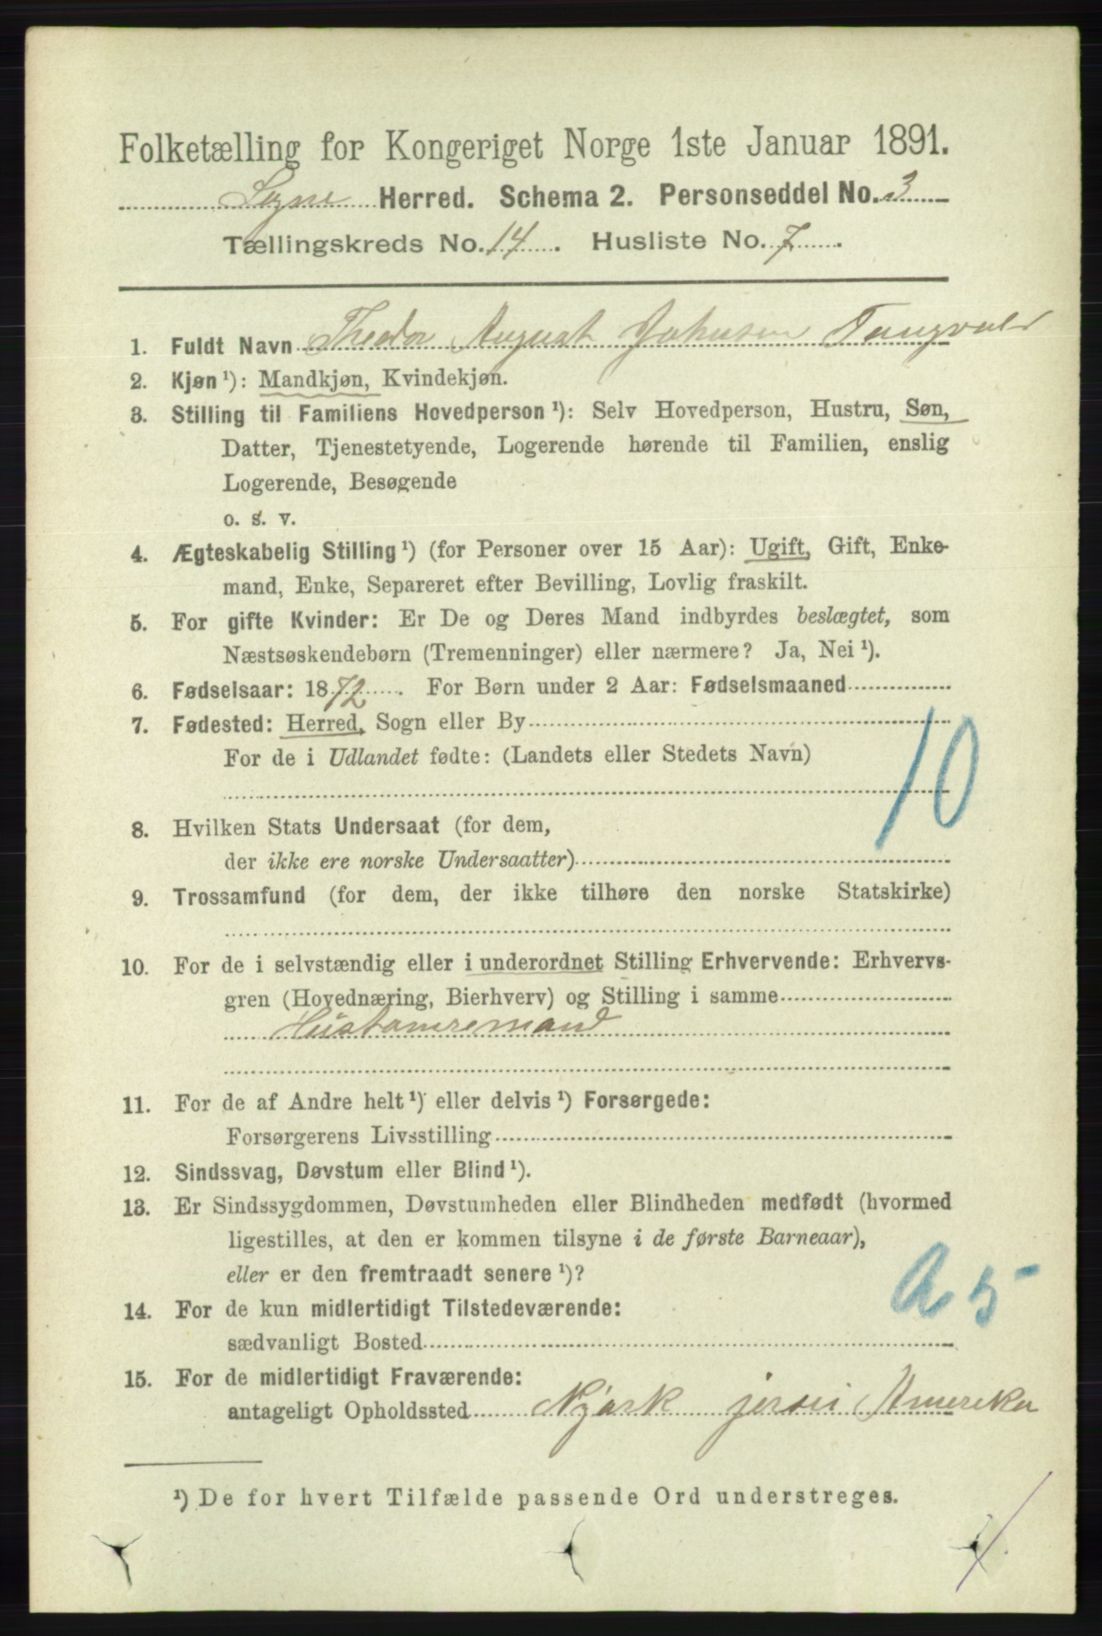 Folketælling for Kongeriget Norge 1ste Januar 1891.
Søgne Herred. Schema 2. Personseddel No. 3
Tællingskreds No. 14. Husliste No. 7.
1. Fuldt Navn Theodor August Johnsen Tangvald
2. Kjøn ¹): Mandkjøn, Kvindekjøn.
3. Stilling til Familiens Hovedperson ¹): Selv Hovedperson, Hustru, Søn,
Datter, Tjenestetyende, Logerende hørende til Familien, enslig
Logerende, Besøgende
o. s. v.
4. Ægteskabelig Stilling ¹) (for Personer over 15 Aar): Ugift, Gift, Enke-
mand, Enke, Separeret efter Bevilling, Lovlig fraskilt.
5. For gifte Kvinder: Er De og Deres Mand indbyrdes beslægtet, som
Næstsøskendebørn (Tremenninger) eller nærmere? Ja, Nei ¹).
6. Fødselsaar: 1872. For Børn under 2 Aar: Fødselsmaaned
7. Fødested: Herred, Sogn eller By
For de i Udlandet fødte: (Landets eller Stedets Navn)
10
8. Hvilken Stats Undersaat (for dem,
der ikke ere norske Undersaatter)
9. Trossamfund (for dem, der ikke tilhøre den norske Statskirke)
10. For de i selvstændig eller i underordnet Stilling Erhvervende: Erhvervs-
gren (Hovednæring, Bierhverv) og Stilling i samme
Hustømremand
11. For de af Andre helt ¹) eller delvis ¹) Forsørgede:
Forsørgerens Livsstilling
12. Sindssvag, Døvstum eller Blind ¹).
13. Er Sindssygdommen, Døvstumheden eller Blindheden medfødt (hvormed
ligestilles, at den er kommen tilsyne i de første Barneaar),
eller er den fremtraadt senere ¹)?
A 5
14. For de kun midlertidigt Tilstedeværende:
sædvanligt Bosted
15. For de midlertidigt Fraværende:
antageligt Opholdssted Njørk jersei Amerika
¹) De for hvert Tilfælde passende Ord understreges.